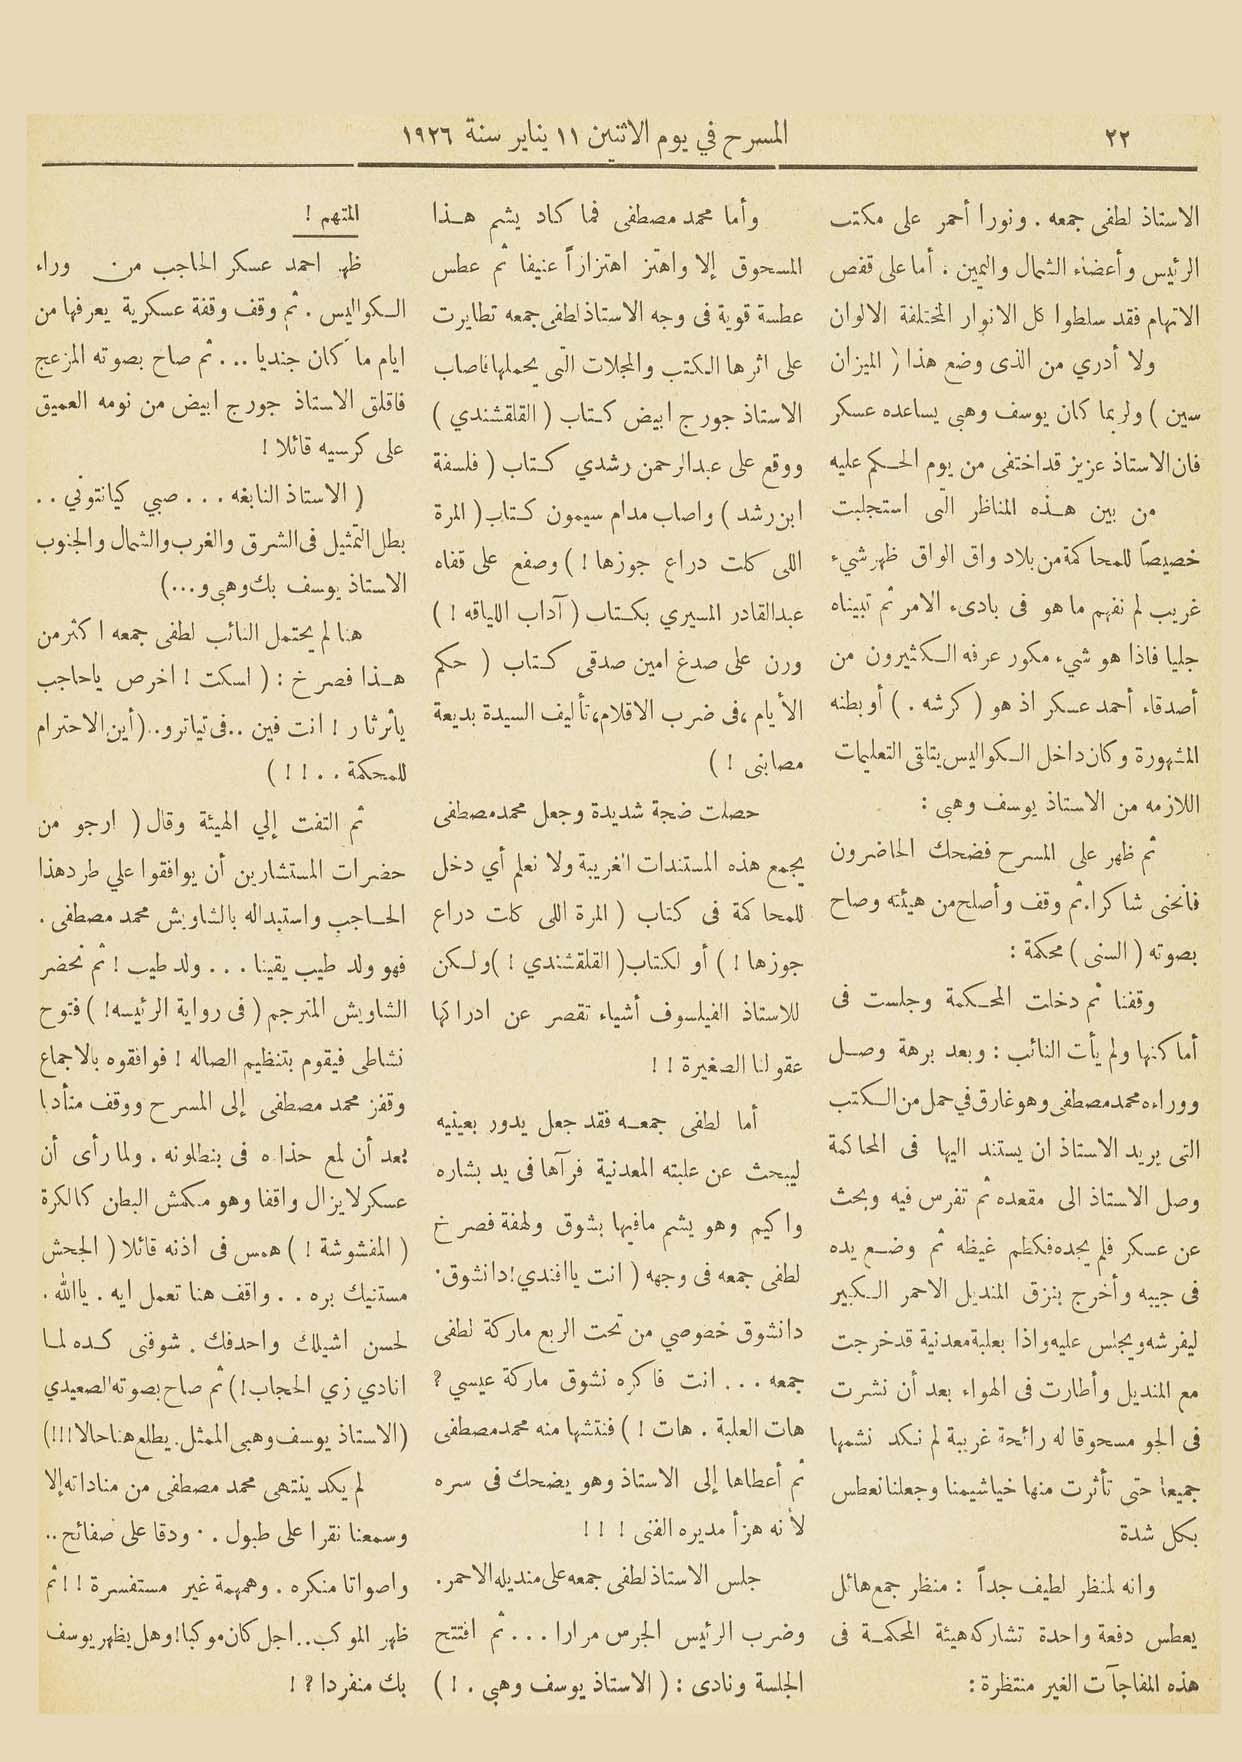 ٢٢
المسرح في يوم الاثنين ١١ يناير سنة ١٩٢٦
الاستاذ لطفى جمعه . ونورا أحمر على مكتب
الرئيس وأعضاء الشمال واليمين . أما على قفص
الاتهام فقد سلطوا كل الانوار المختلفة الالوان
ولا أدري من الذى وضع هذا ( الميزان
سين ) ولربما كان يوسف وهبى يساعده عسكر
فان الاستاذ عزيز قد اختفى من يوم الحكم عليه
من بين هذه المناظر التى استجلبت
خصيصاً للمحاكمة من بلاد واق الواق ظهر شيء
غريب لم نفهم ما هو فى بادىء الامر ثم تبيناه
جليا فاذا هو شيء مكور عرفه الكثيرون من
أصدقاء أحمد عسكر اذ هو ( كرشه . ) أو بطنه
المشهورة وكان داخل الكواليس يتلقى التعليمات
اللازمه من الاستاذ يوسف وهبي :
ثم ظهر على المسرح فضحك الحاضرون
فأنحنى شاكرا. ثم وقف وأصلح من هيئته وصاح
بصوته ( السنى ) محكمة :
وقفنا ثم دخلت المحكمة وجلست فى
أماكنها ولم يأت النائب : وبعد برهة وصل
ووراءه محمد مصطفى وهو غارق في حمل من الكتب
التى يريد الاستاذ ان يستند اليها فى المحاكمة
وصل الاستاذ الى مقعده ثم تفرس فيه وبحث
عن عسكر فلم يجده فكظم غيظه ثم وضع يده
فى جيبه وأخرج بنزق المنديل الاحمر الكبير
ليفرشه ويجلس عليه واذا بعلبة معدنية قد خرجت
مع المنديل وأطارت فى الهواء بعد أن نشرت
فى الجو مسحوقا له رائحة غريبة لم نكد نشمها
جميعا حتى تأثرت منها خياشيمنا وجعلنا نعطس
بكل شدة
وانه لمنظر لطيف جداً : منظر جمع هائل
يعطس دفعة واحدة تشاركه هيئة المحكمة فى
هذه المفاجآت الغير منتظرة :
وأما محمد مصطفى فما كاد يشم هذا
المسحوق إلا واهتز اهتزازاً عنيفا ثم عطس
عطسة قوية فى وجه الاستاذ لطفى جمعه تطايرت
على اثرها الكتب والمجلات التى يحملها فاصاب
الاستاذ جورج ابيض كتاب ( القلقشندي )
ووقع على عبدالرحمن رشدي كتاب ( فلسفة
ابن رشد ) واصاب مدام سيمون كتاب ( المرة
اللى كلت دراع جوزها ! ) وصفع على قفاه
عبدالقادر المسيري بكتاب ( آداب اللياقه ! )
ورن على صدغ امين صدقى كتاب ( حكم
الأيام ، فى ضرب الاقلام، تأليف السيدة بديعة
مصابنى ! )
حصلت ضجة شديدة وجعل محمد مصطفى
يجمع هذه المستندات الغريبة ولا نعلم أي دخل
للمحاكمة فى كتاب ( المرة اللى كلت دراع
جوزها ! ) أو لكتاب ( القلقشندي ! ) ولكن
للاستاذ الفيلسوف أشياء تقصر عن ادراكها
عقولنا الصغيرة ! !
أما لطفى جمعه فقد جعل يدور بعينيه
ليبحث عن علبته المعدنية فرآها فى يد بشاره
واكيم وهو يشم مافيها بشوق ولهفة فصرخ
لطفى جمعه فى وجهه ( انت ياافندي! دانشوق.
دانشوق خصوصي من تحت الربع ماركة لطفى
جمعه ... انت فاكره نشوق ماركة عيسي ؟
هات العلبة . هات ! ) فنتشها منه محمد مصطفى
ثم أعطاها إلى الاستاذ وهو يضحك فى سره
لأنه هزأ مديره الفنى ! ! !
جلس الاستاذ لطفى جمعه على منديله الاحمر.
وضرب الرئيس الجرس مرارا ... ثم افتتح
الجلسة ونادى : ( الاستاذ يوسف وهبى . ! )
المتهم !
ظهر احمد عسكر الحاجب من وراء
الكواليس . ثم وقف وقفة عسكرية يعرفها من
ايام ما كان جنديا ... ثم صاح بصوته المزعج
فاقلق الاستاذ جورج ابيض من نومه العميق
على كرسيه قائلا !
( الاستاذ النابغه ... صبي كيانتوني ..
بطل التمثيل فى الشرق والغرب والشمال والجنوب
الاستاذ يوسف بك وهبى و...)
هنا لم يحتمل النائب لطفى جمعه اكثر من
هذا فصرخ : ( اسكت ! اخرص ياحاجب
يأثرثار ! انت فين .. فى تياترو.. (أين الاحترام
للمحكمة . . ! ! )
ثم التفت إلي الهيئة وقال ( ارجو من
حضرات المستشارين أن يوافقوا علي طرد هذا
الحاجب واستبداله بالشاويش محمد مصطفى .
فهو ولد طيب يقينا ... ولد طيب ! ثم نحضر
الشاويش المترجم ( فى رواية الرئيسه! ) فتوح
نشاطى فيقوم بتنظيم الصاله ! فوافقوه بالاجماع
وقفز محمد مصطفى إلى المسرح ووقف متأدبا
بعد أن لمع حذاه فى بنطلونه . ولما رأى أن
عسكر لايزال واقفا وهو مكمش البطن كالكرة
( المفشوشة ! ) همس فى اذنه قائلا ( الجحش
مستنيك بره . . واقف هنا تعمل ايه . ياالله .
لحسن اشيلك واحدفك . شوفنى كده لما
انادي زي الحجاب! ) ثم صاح بصوته الصعيدي
( الاستاذ يوسف وهبى الممثل. يطلع هنا حالا ! ! ! )
لم يكد ينتهى محمد مصطفى من مناداته إلا
وسمعنا نقرا على طبول . . ودقا على صفائح ..
واصواتا منكره . وهمهمة غير مستفسرة ! ! ثم
ظهر الموكب .. اجل كان موكبا! وهل يظهر يوسف
بك منفردا ؟ !